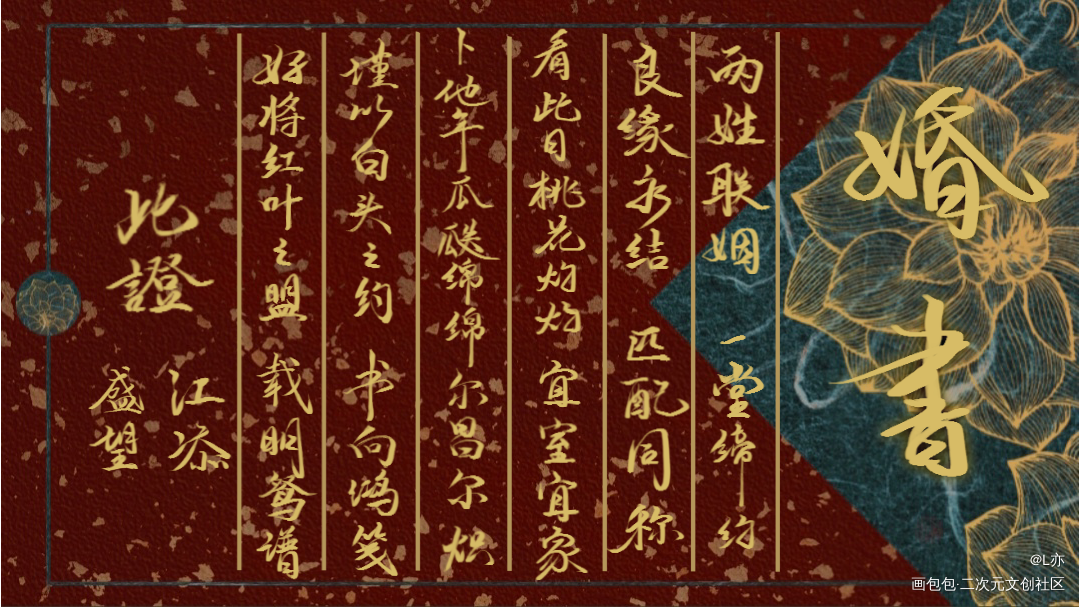 婚書
两姓联姻 一堂缔约
良缘永结 匹配同称
看此日桃花灼灼 宜室宜家
卜他年瓜瓞绵绵 尔昌尔炽
谨以白头之约 书向鸿笺
好将红叶之盟 载明鸳谱
此證
江添
盛望
@L亦
画包包·二次元文创社区